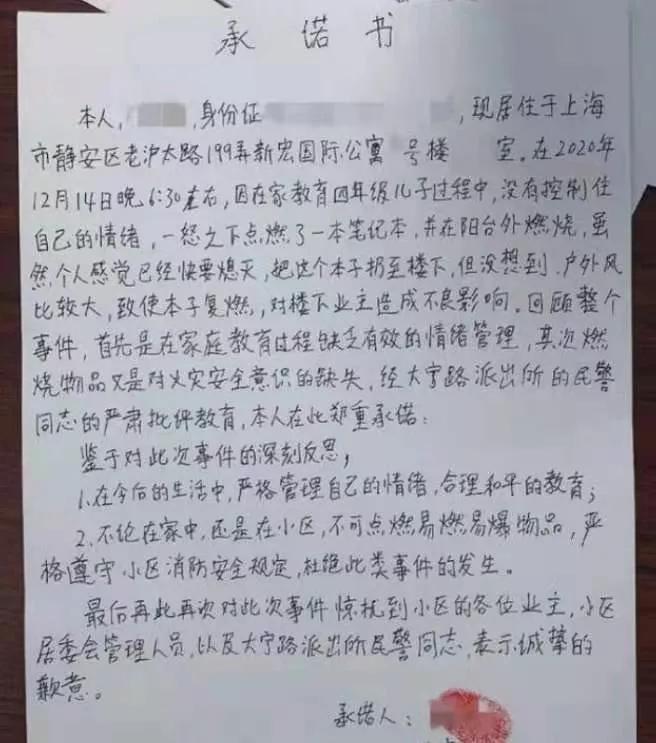 承诺书
本人，身份证，现居住于上海
市静安区老沪太路199弄新宏国际公寓 号楼 室。在2020年
12月14日晚6:30左右，因在家教育四年级儿子过程中，没有控制住
自己的情绪，一怒之下点燃了一本笔记本，并在阳台外燃烧，虽
然个人感觉已经快要熄灭，把这个本子扔至楼下，但没想到，户外风
比较大，致使本子复燃，对楼下业主造成不良影响。回顾整个
事件，首先是在家庭教育过程缺乏有效的情绪管理，其次燃
烧物品又是对火灾安全意识的缺失，经大宁路派出所的民警
同志的严肃批评教育，本人在此郑重承诺：
鉴于对此次事件的深刻反思；
1.在今后的生活中，严格管理自己的情绪，合理和平的教育；
2.不论在家中，还是在小区，不可点燃易燃易爆物品，严
格遵守小区消防安全规定，杜绝此类事件的发生。
最后再此再次对此次事件惊扰到小区的各位业主，小区
居委会管理人员，以及大宁路派出所民警同志，表示诚挚的
歉意。
承诺人：